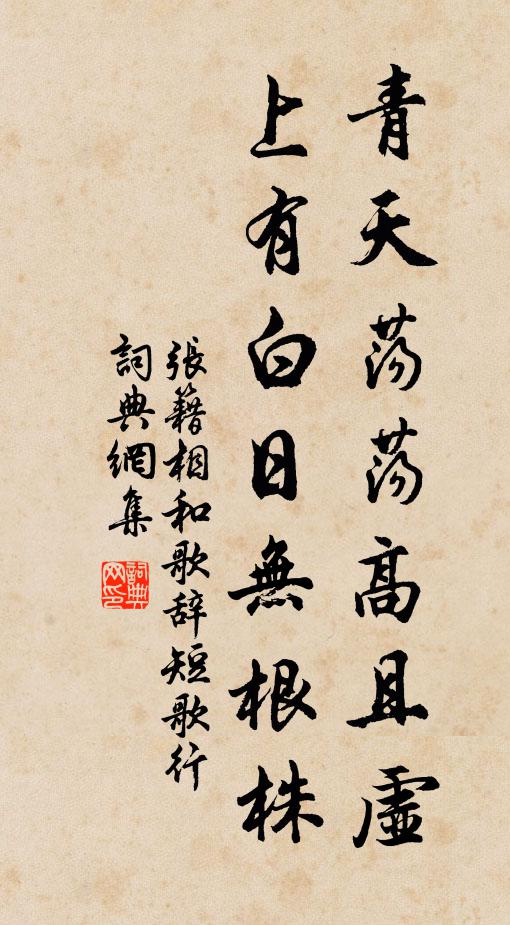 青天荡荡高且虛
上有白日無根株
張籍相和歌辞短歌行
詞典網集
詞典网印